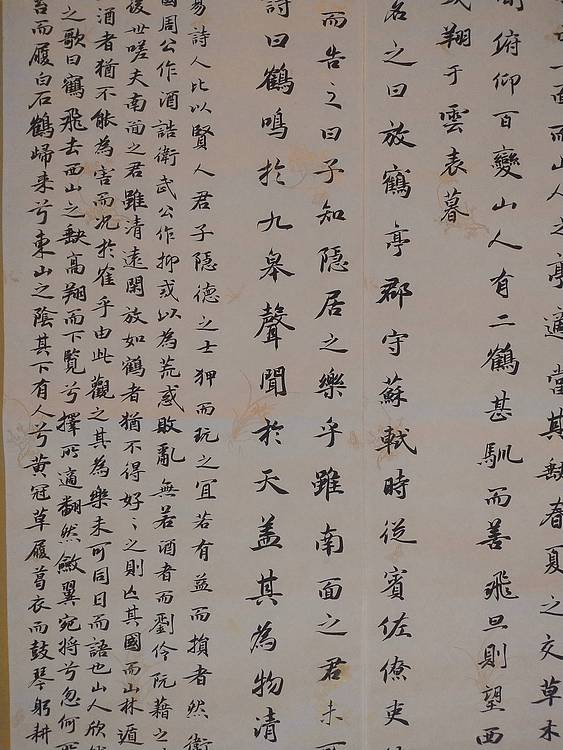 一面而山人之亭適當其缺春夏之交草木
間俯仰百變山人有二鶴甚馴而善飛旦則望西
或翔于雲表暮
名之曰放鶴亭郡守蘇軾時從賓佐僚吏
而告之曰子知隱居之樂乎雖南面之君未
詩曰鶴鳴於九皋聲聞於天蓋其為物清
易詩人比以賢人君子隱德之士狎而玩之宜若有益而損者然衛
國周公作酒誥衛武公作抑或以為荒惑敗亂無若酒者而劉伶阮籍之
後世嗟夫南面之君雖清遠閑放如鶴者猶不得好〻之則亡其國而山林遁
酒者猶不能為害而況於隺乎由此觀之其為樂未可同日而語也山人欣然
之歌曰鶴飛去西山之缺高翔而下覽兮擇所適翻然斂翼宛將兮忽何所
苔而履白石鶴歸來兮東山之陰其下有人兮黃冠草履葛衣而鼓琴躬耕